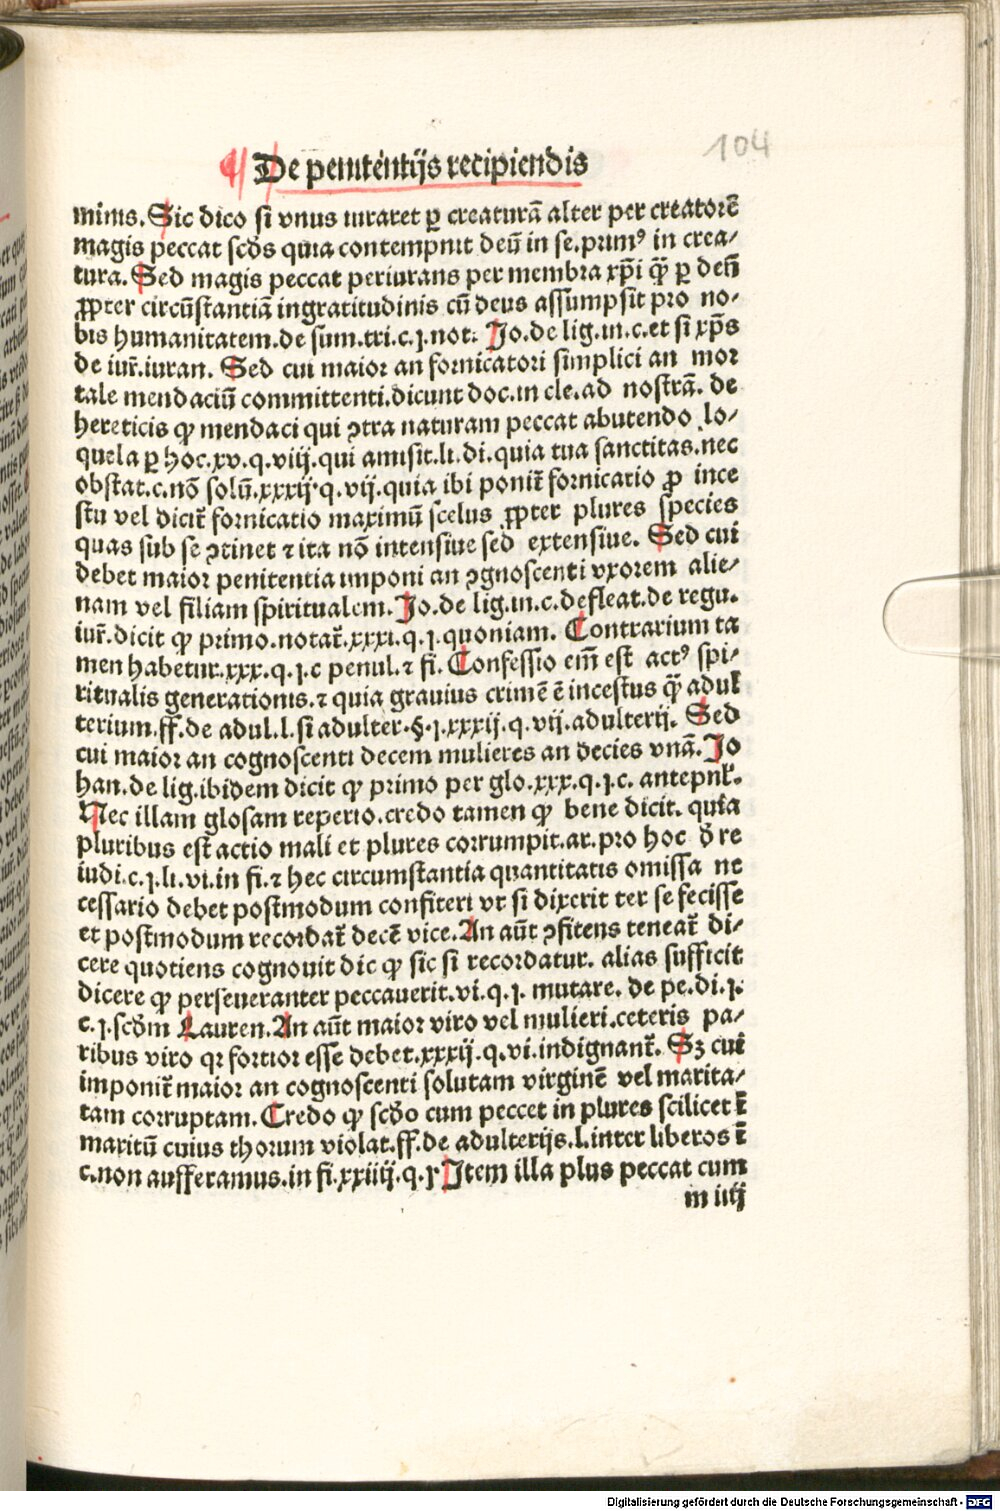 104
De penitētijs recipiendis
minis. Sic dico si vnus iuraret ꝑ creaturā alter per creatorē
magis peccat scḋs quia contempnit deū in se. primꝰ in crea⸗
tura. Sed magis peccat periurans per membra xp̄i qͣ̄ ꝑ deū
ꝓpter circūstantiā ingratitudinis cū deus assumpsit pro no⸗
bis humanitatem. de sum. tri. c. j. not. Jo. de lig. in. c. et si xp̄s
de iur̄. iuran. Sed cui maior an fornicatori simplici an mor
tale mendaciū committenti. dicunt doc. in cle. ad nostrā. de
hereticis ꝙ mendaci qui ꝯtra naturam peccat abutendo lo⸗
quela ꝑ hoc. xv. q. viij. qui amisit. li. di. quia tua sanctitas. nec
obstat. c. nō solū. xxxij. q. vij. quia ibi ponit̄ fornicatio ꝓ ince
stu vel dicit̄ fornicatio maximū scelus ꝓpter plures species
quas sub se ꝯtinet ⁊ ita nō intensiue sed extensiue. Sed cui
debet maior penitentia imponi an ꝯgnoscenti vxorem alie⸗
nam vel filiam spiritualem. Jo. de lig. in. c. defleat. de regu.
iur̄. dicit ꝙ primo. notat̄. xxxi. q. j. quoniam. Contrarium ta
men habetur. xxx. q. j. c penul. ⁊ fi. Confessio em̄ est actꝰ spi⸗
ritualis generationis. ⁊ quia grauius crimē ē incestus qͣ̄ adul
terium. ff. de adul. l. si adulter. §. j. xxxij. q. vij. adulterij. Sed
cui maior an cognoscenti decem mulieres an decies vnā. Jo
han. de lig. ibidem dicit ꝙ primo per glo. xxx. q. j. c. antepnl̄.
Nec illam glosam reperio. credo tamen ꝙ bene dicit. quia
pluribus est actio mali et plures corrumpit. ar. pro hoc ḋ re
iudi. c. j. li. vi. in fi. ⁊ hec circumstantia quantitatis omissa ne
cessario debet postmodum confiteri vt si dixerit ter se fecisse
et postmodum recordat̄ decē vice. An aūt ꝯfitens teneat̄ di⸗
cere quotiens cognouit dic ꝙ sic si recordatur. alias sufficit
dicere ꝙ perseueranter peccauerit. vi. q. j. mutare. de pe. di. j.
c. j. scḋm Lauren. An aūt maior viro vel mulieri. ceteris pa⸗
ribus viro qꝛ fortior esse debet. xxxij. q. vi. indignant̄. Sꝫ cui
imponit̄ maior an cognoscenti solutam virginē vel marita⸗
tam corruptam. Credo ꝙ scḋo cum peccet in plures scilicet ī
maritū cuius thorum violat. ff. de adulterijs. l. inter liberos ī
c. non aufferamus. in fi. xxiiij. q. j. Item illa plus peccat cum
m iiij
Digitalisierung gefördert durch die Deutsche Forschungsgemeinschaft - DFG